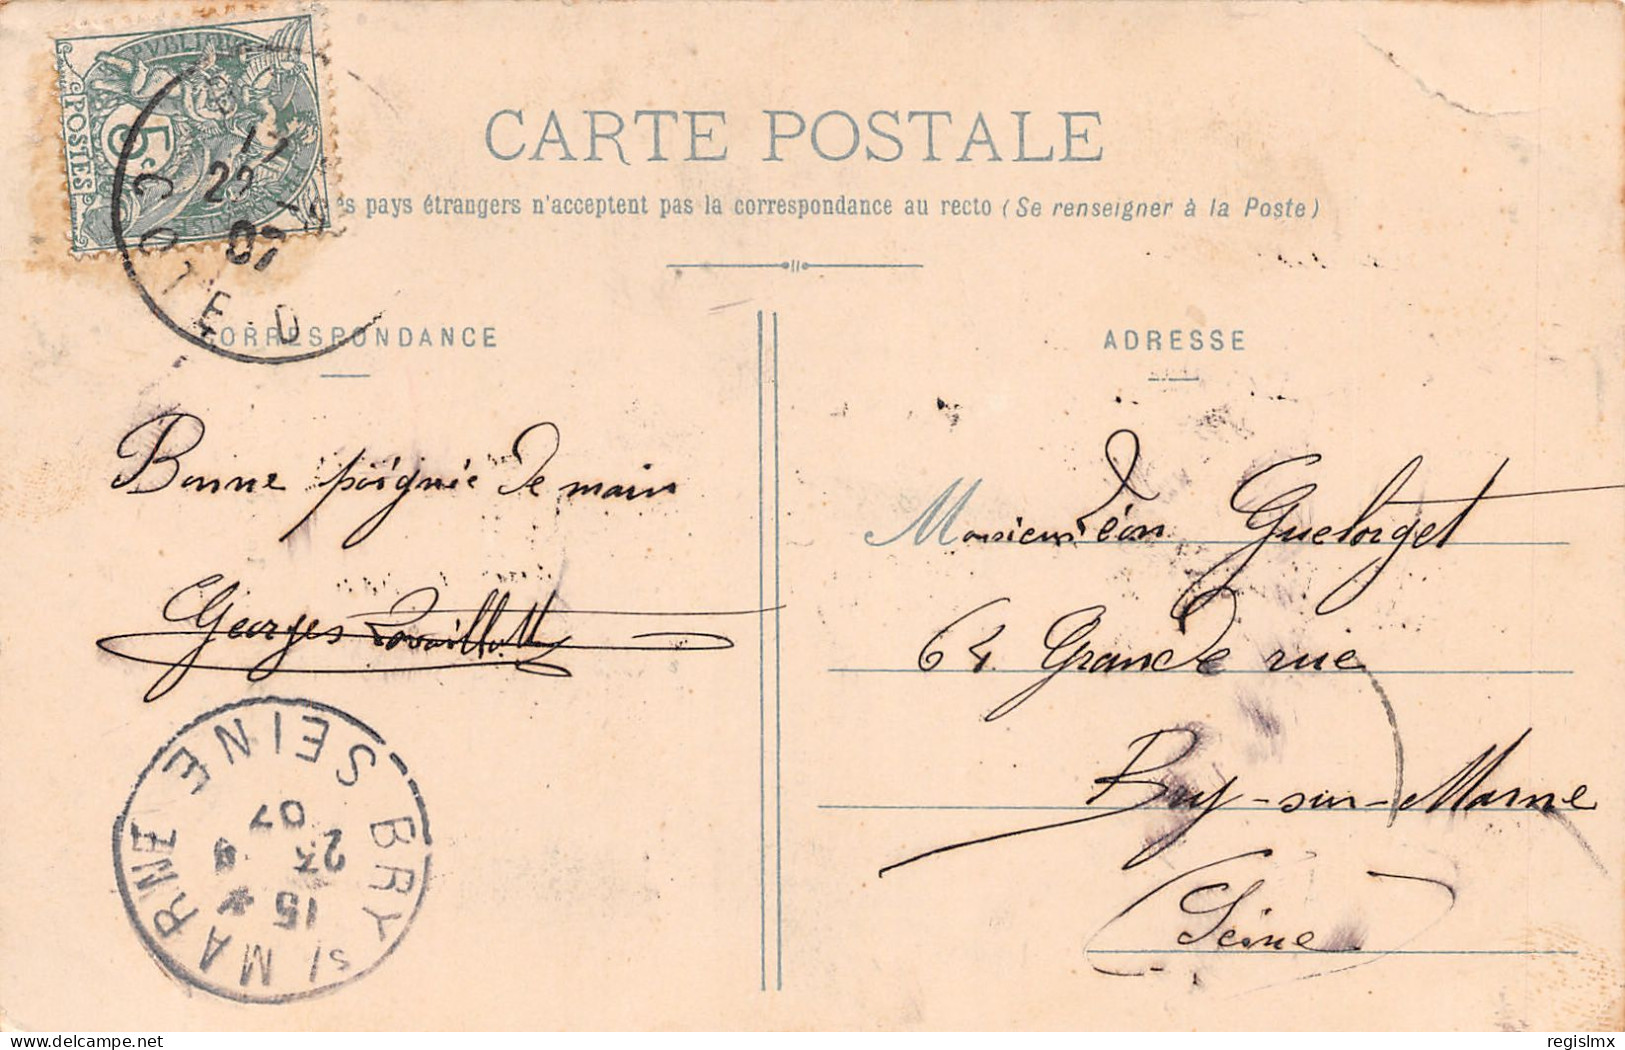 RÉPUBLIQUE
POSTES
5c
17
22
07
COTE D
CARTE POSTALE
pays étrangers n'acceptent pas la correspondance au recto (Se renseigner à la Poste)
CORRESPONDANCE
Bonne poignée de main
Georges
BRY S/ MARNE
SEINE
15
23 9
07
ADRESSE
Monsieur Léon Guelorget
64 Grande rue
Bry-sur-Marne
Seine
regislmx